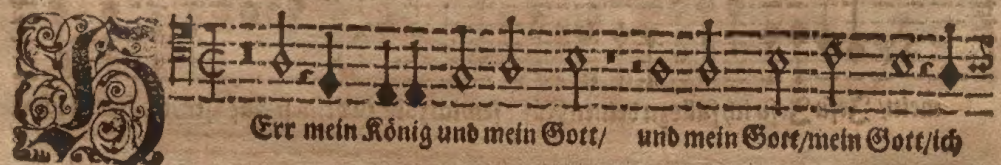 HErr mein König und mein Gott/ und mein Gott/mein Gott/ich